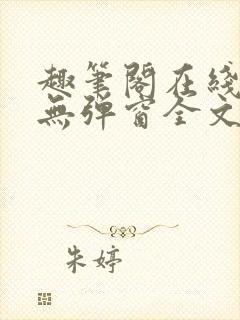 趣笔閣在綫
無弹窗全文
朱婷